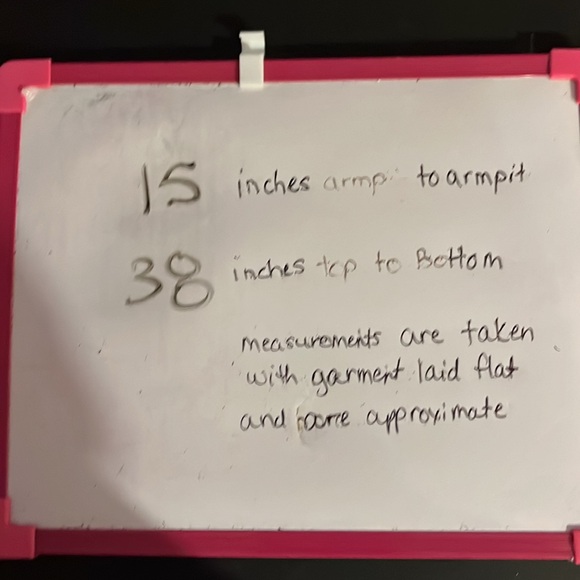 15 inches armpi to armpit
38 inches top to Bottom
measurements are taken
with garment laid flat
and are approximate